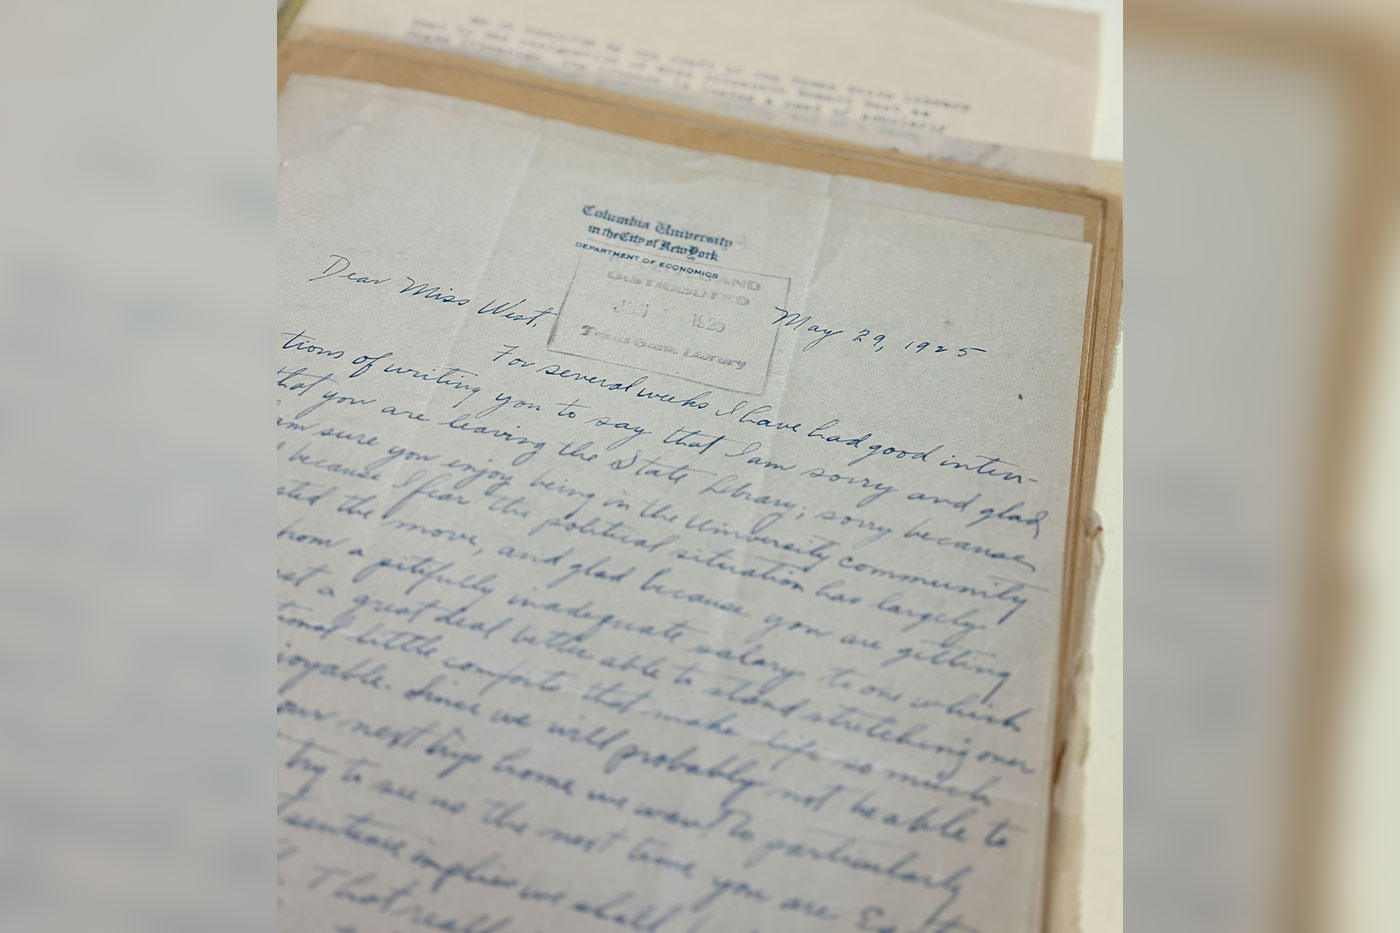 by the staff of the Texas State Library
Columbia University
in the City of New York
DEPARTMENT OF ECONOMICS
AND
DISTRIBUTED
JUN 1925
Texas State Library
May 29, 1925
Dear Miss West,
For several weeks I have had good inten-
tions of writing you to say that I am sorry and glad
that you are leaving the State Library; sorry because
am sure you enjoy being in the University community
because I fear the political situation has largely
the move, and glad because you are getting
from a pitifully inadequate salary to one which
a great deal better able to stand stretching over
little comforts that make life so much
Since we will probably not be able to
our next trip home, we want to particularly
try to see us the next time you are East
sentence implies we shall
That really